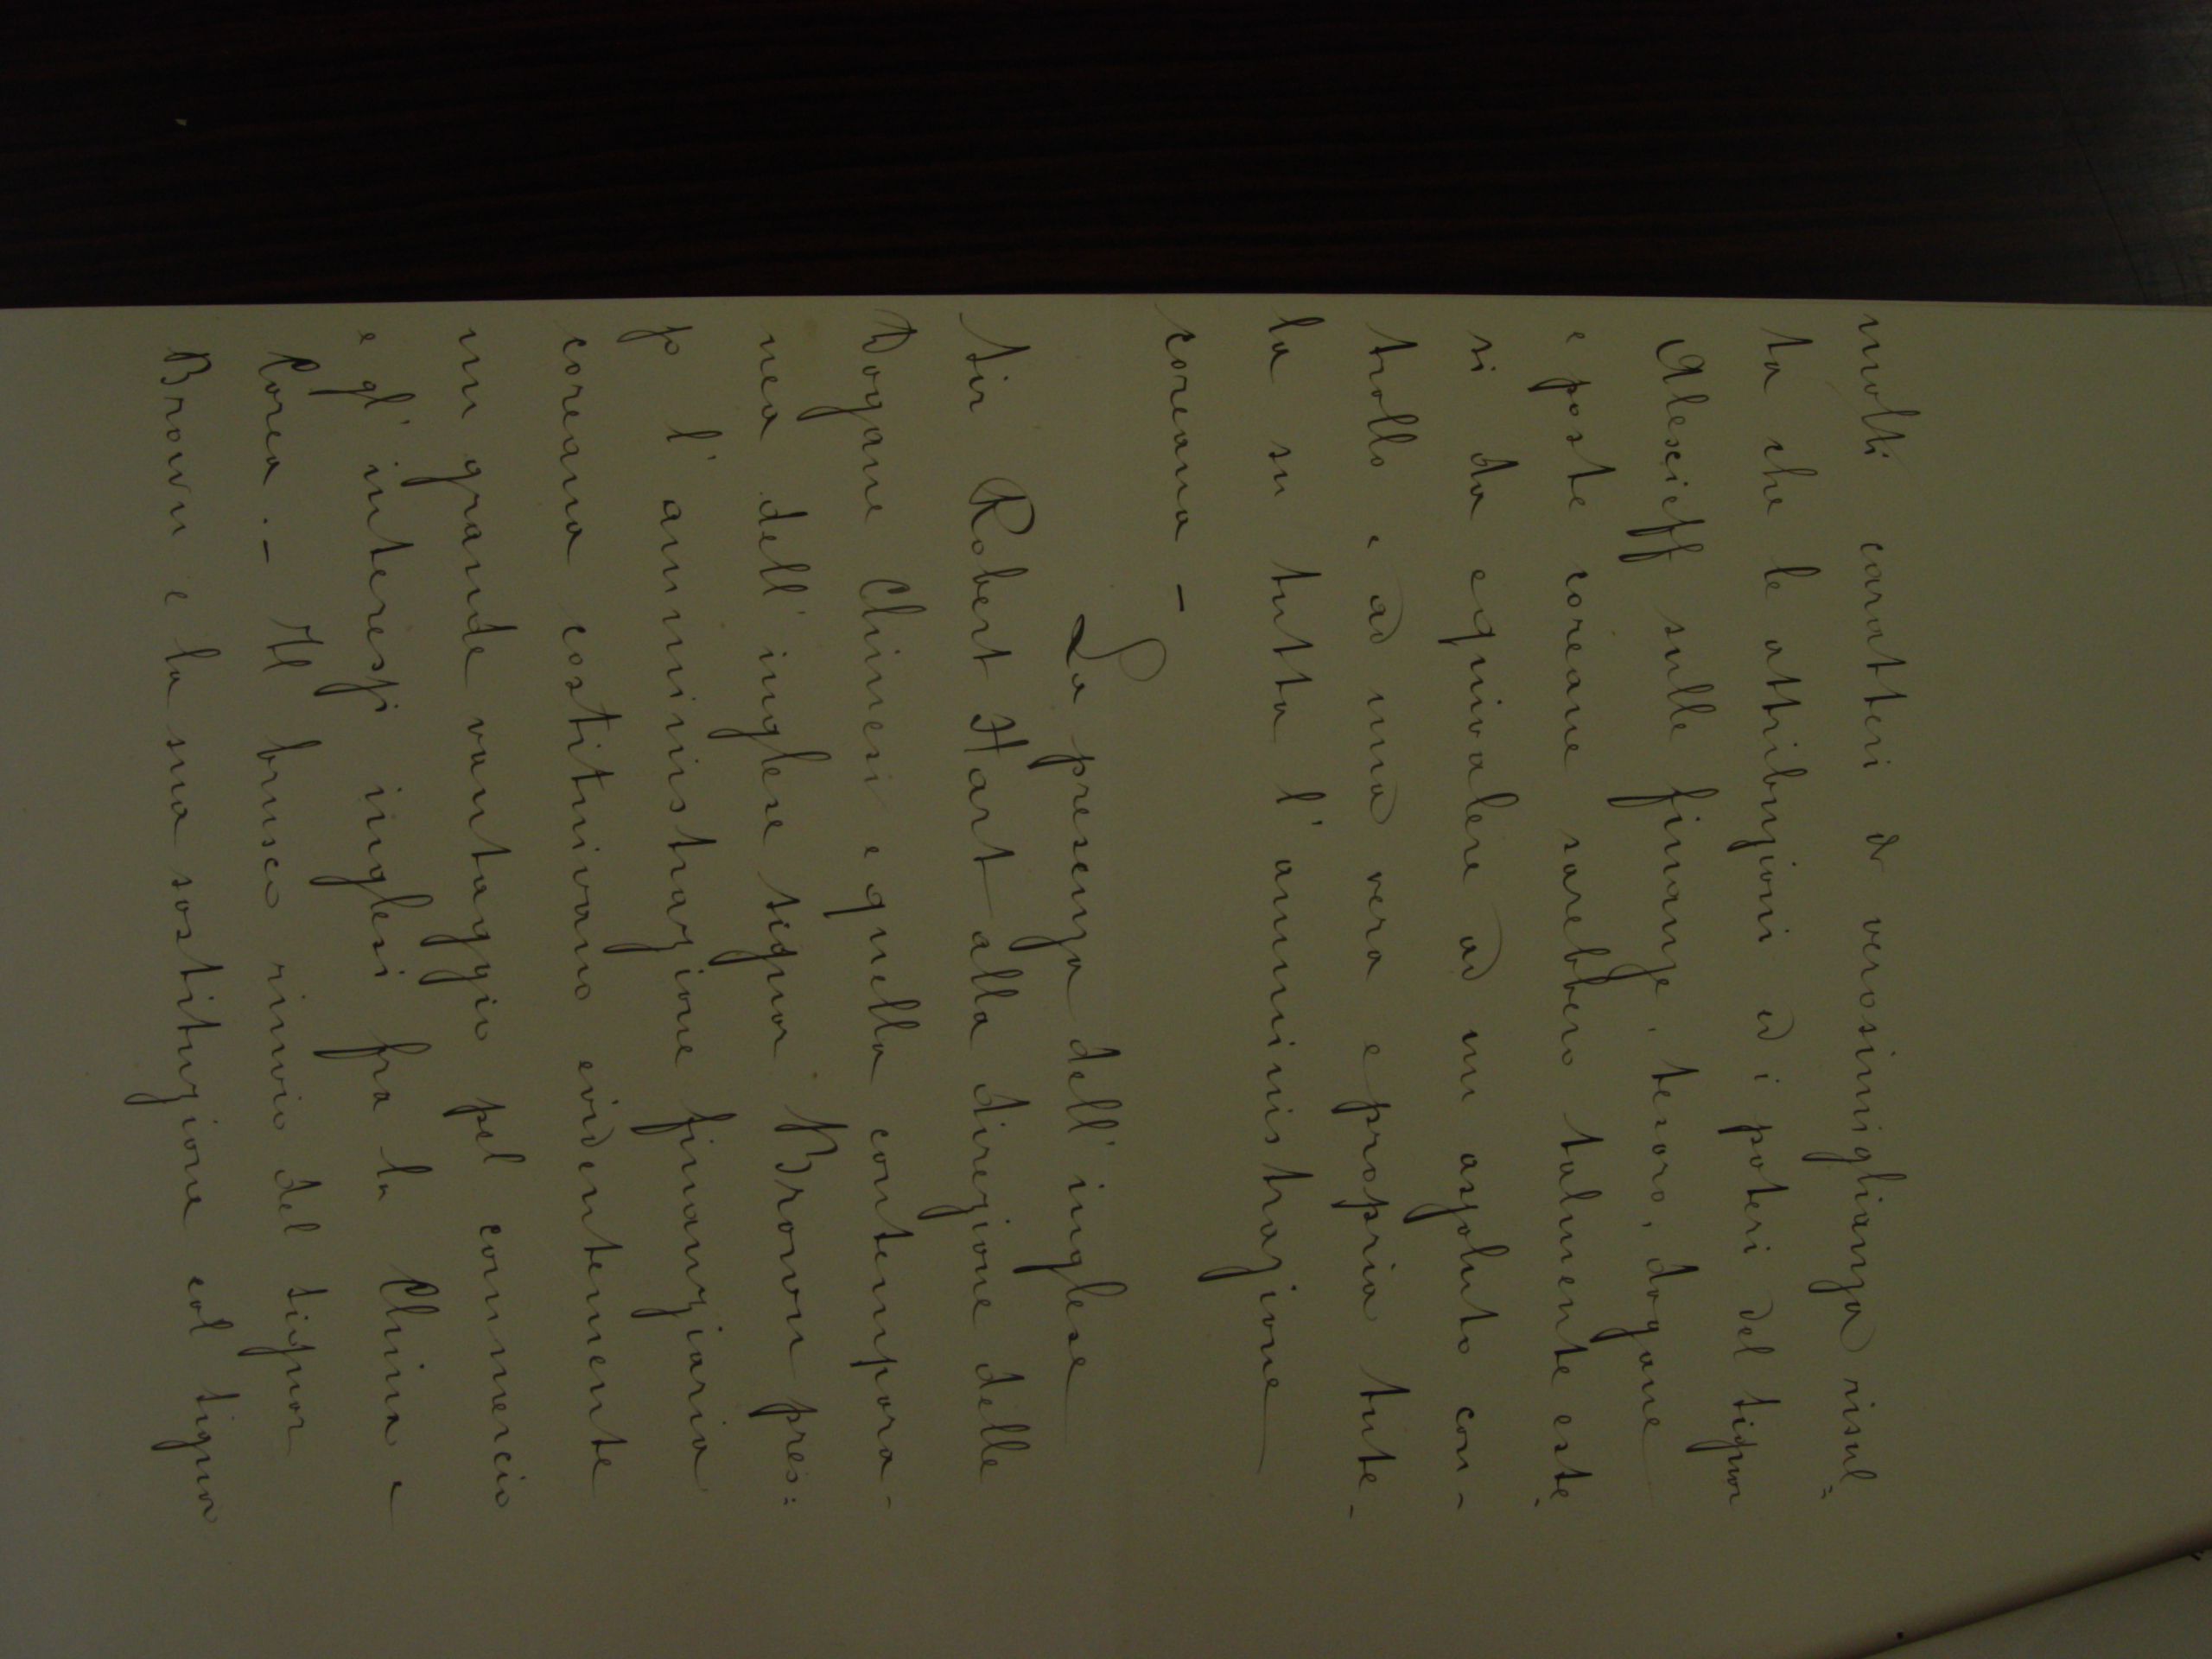 molti caratteri di verosimiglianza risul=
ta che le attribuzioni ed i poteri del signor
Alexeieff sulle finanze, tesoro, dogane
e poste coreane sarebbero talmente este-
si da equivalere ad un assoluto con-
trollo e ad una vera e propria tute-
la su tutta l'amministrazione
coreana -
La presenza dell'inglese
Sir Robert Hart alla direzione delle
Dogane Chinesi e quella contempora-
nea dell'inglese signor Brown pres:
so l'amministrazione finanziaria
coreana costituivano evidentemente
un grande vantaggio pel commercio
e gl'interessi inglesi fra la China e
Corea. - Il brusco rinvio del signor
Brown e la sua sostituzione col signor